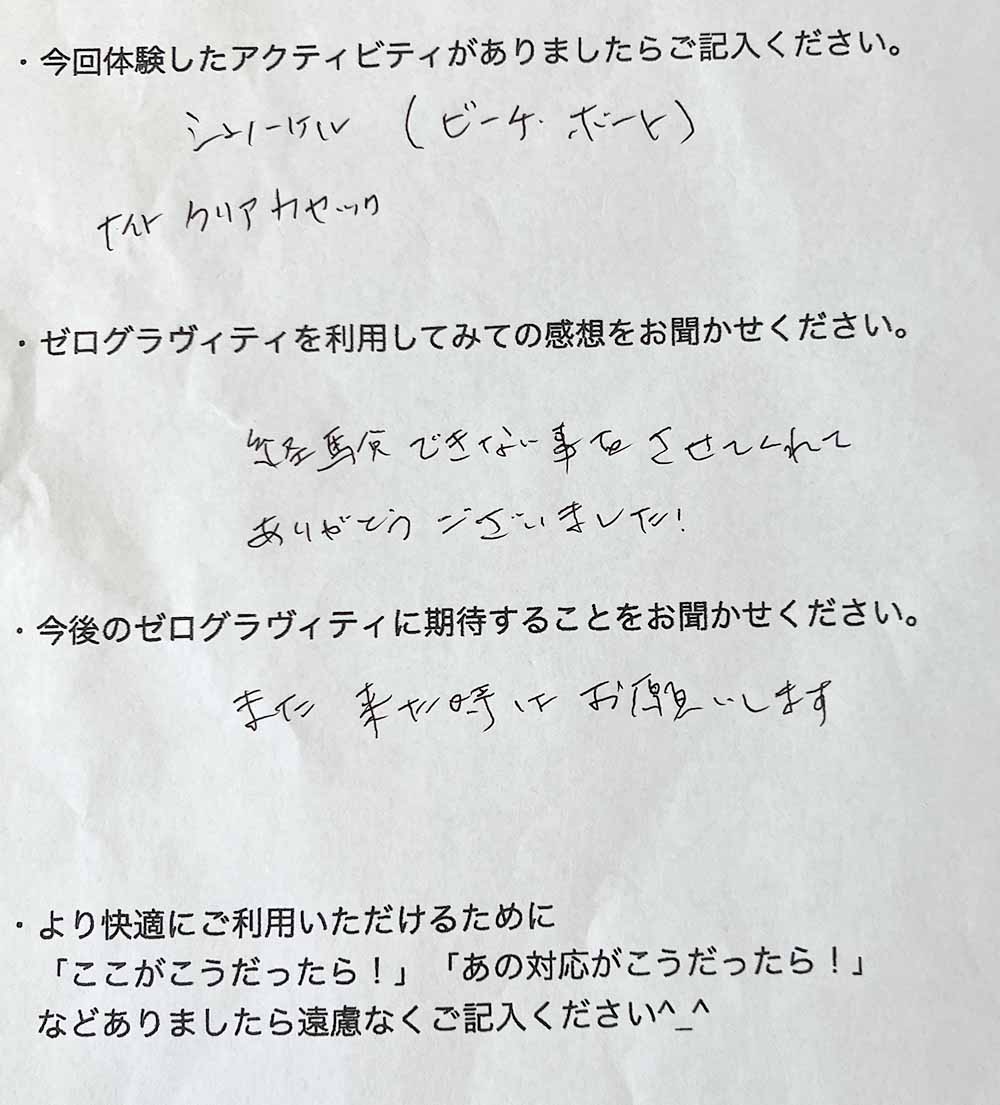 ・今回体験したアクティビティがありましたらご記入ください。
シュノーケル (ビーチ・ボート)
ナイト クリアカヤック
・ゼログラヴィティを利用してみての感想をお聞かせください。
経験できない事をさせてくれて
ありがとうございました!
・今後のゼログラヴィティに期待することをお聞かせください。
また来た時はお願いします
・より快適にご利用いただけるために
「ここがこうだったら!」「あの対応がこうだったら!」
などありましたら遠慮なくご記入ください^_^